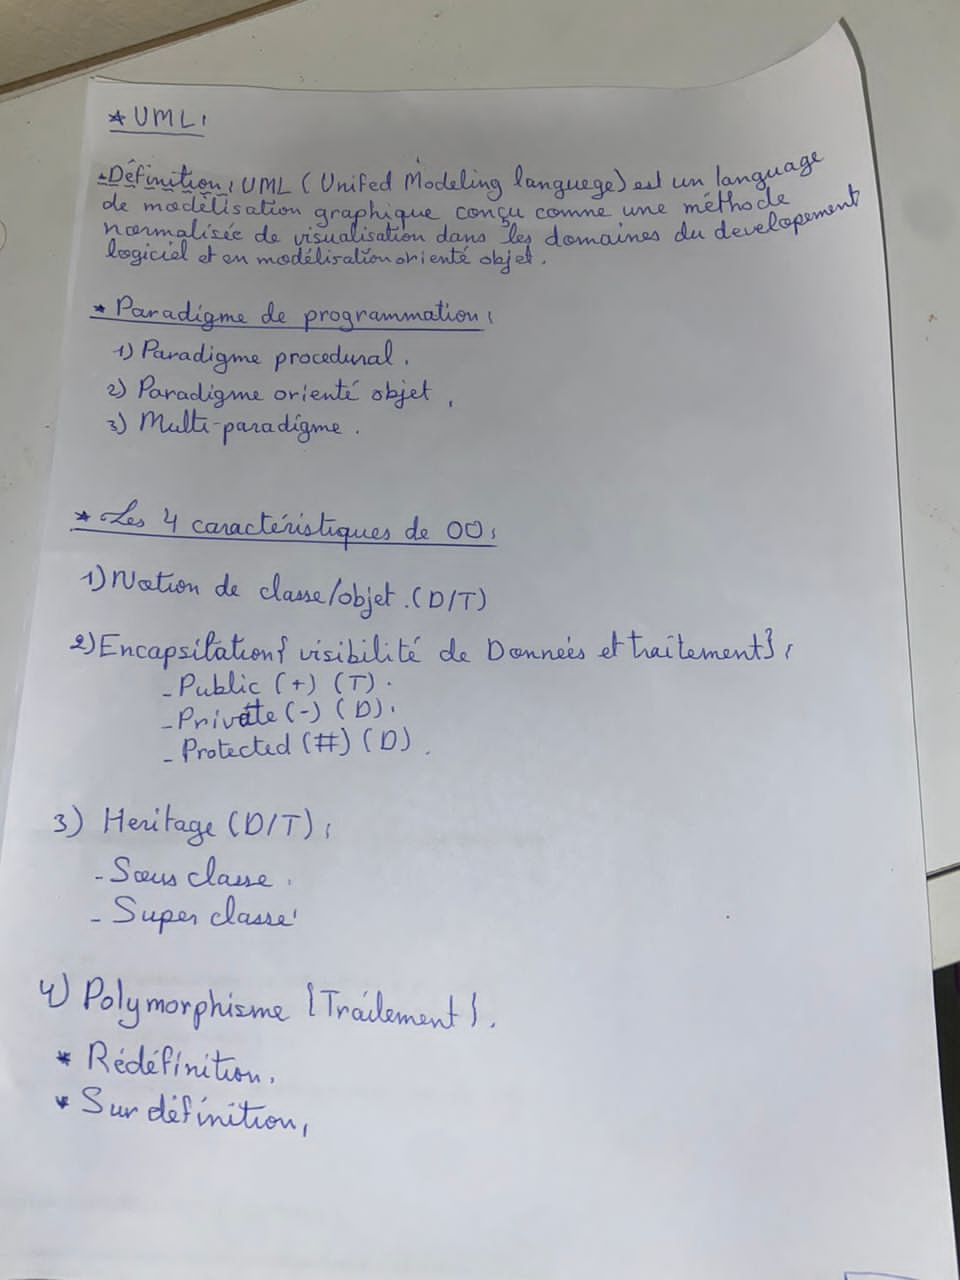 * UML :
- Définition : UML ( Unifed Modeling languege) est un language
de modélisation graphique conçu comme une méthode
normalisée de visualisation dans les domaines du developement
logiciel et en modélisation orienté objet.
* Paradigme de programmation :
1) Paradigme procedural.
2) Paradigme orienté objet.
3) Multi-paradigme.
* Les 4 caractéristiques de OO :
1) Notion de classe/objet. (D/T)
2) Encapsilation { visibilité de Données et traitement} :
- Public (+) (T).
- Private (-) (D).
- Protected (#) (D).
3) Heritage (D/T) :
- Sous classe.
- Super classe.
4) Polymorphisme {Traitement}.
* Rédéfinition.
* Sur définition.